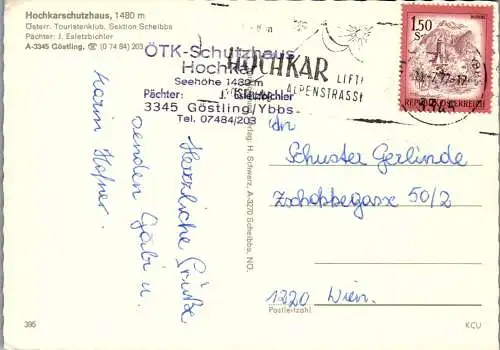 Hochkarschutzhaus, 1480 m
Österr. Touristenklub, Sektion Scheibbs
Pächter: J. Esletzbichler
A-3345 Göstling, ☏ (0 74 84) 203
ÖTK-Schutzhaus
Hochkar
Seehöhe 1480 m
Pächter: J. Esletzbichler
3345 Göstling/Ybbs
Tel. 07484/203
HOCHKAR LIFT
ALPENSTRASSE
1.50
S
REPUBLIK ÖSTERREICH
3345
Herzliche Grüße
senden Gabi u.
Karin Hofner.
H. Schwarz, A-3270 Scheibbs, NÖ.
An
Schuster Gerlinde
Zschokkegasse 50/2
1220 Wien
Postleitzahl
395
KCU